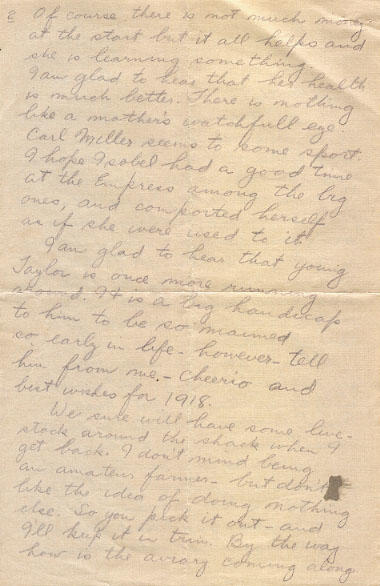 2 Of course there is not much money
at the start but it all helps and
she is learning something.
I am glad to hear that her health
is much better. There is nothing
like a mother's watchfull eye
Carl Miller seems to some sport.
I hope Isobel had a good time
at the Empress among the big
ones, and comported herself
as if she were used to it.
I am glad to hear that young
Taylor is once more running
around. It is a big handicap
to him to be so maimed
so early in life - however - tell
him from me - Cheerio and
best wishes for 1918.
We sure will have some live-
stock around the shack when I
get back. I don't mind being
an amateur farmer - but don't
like the idea of doing nothing
else. So you pick it out - and
I'll keep it in trim. By the way
how is the aviary coming along.